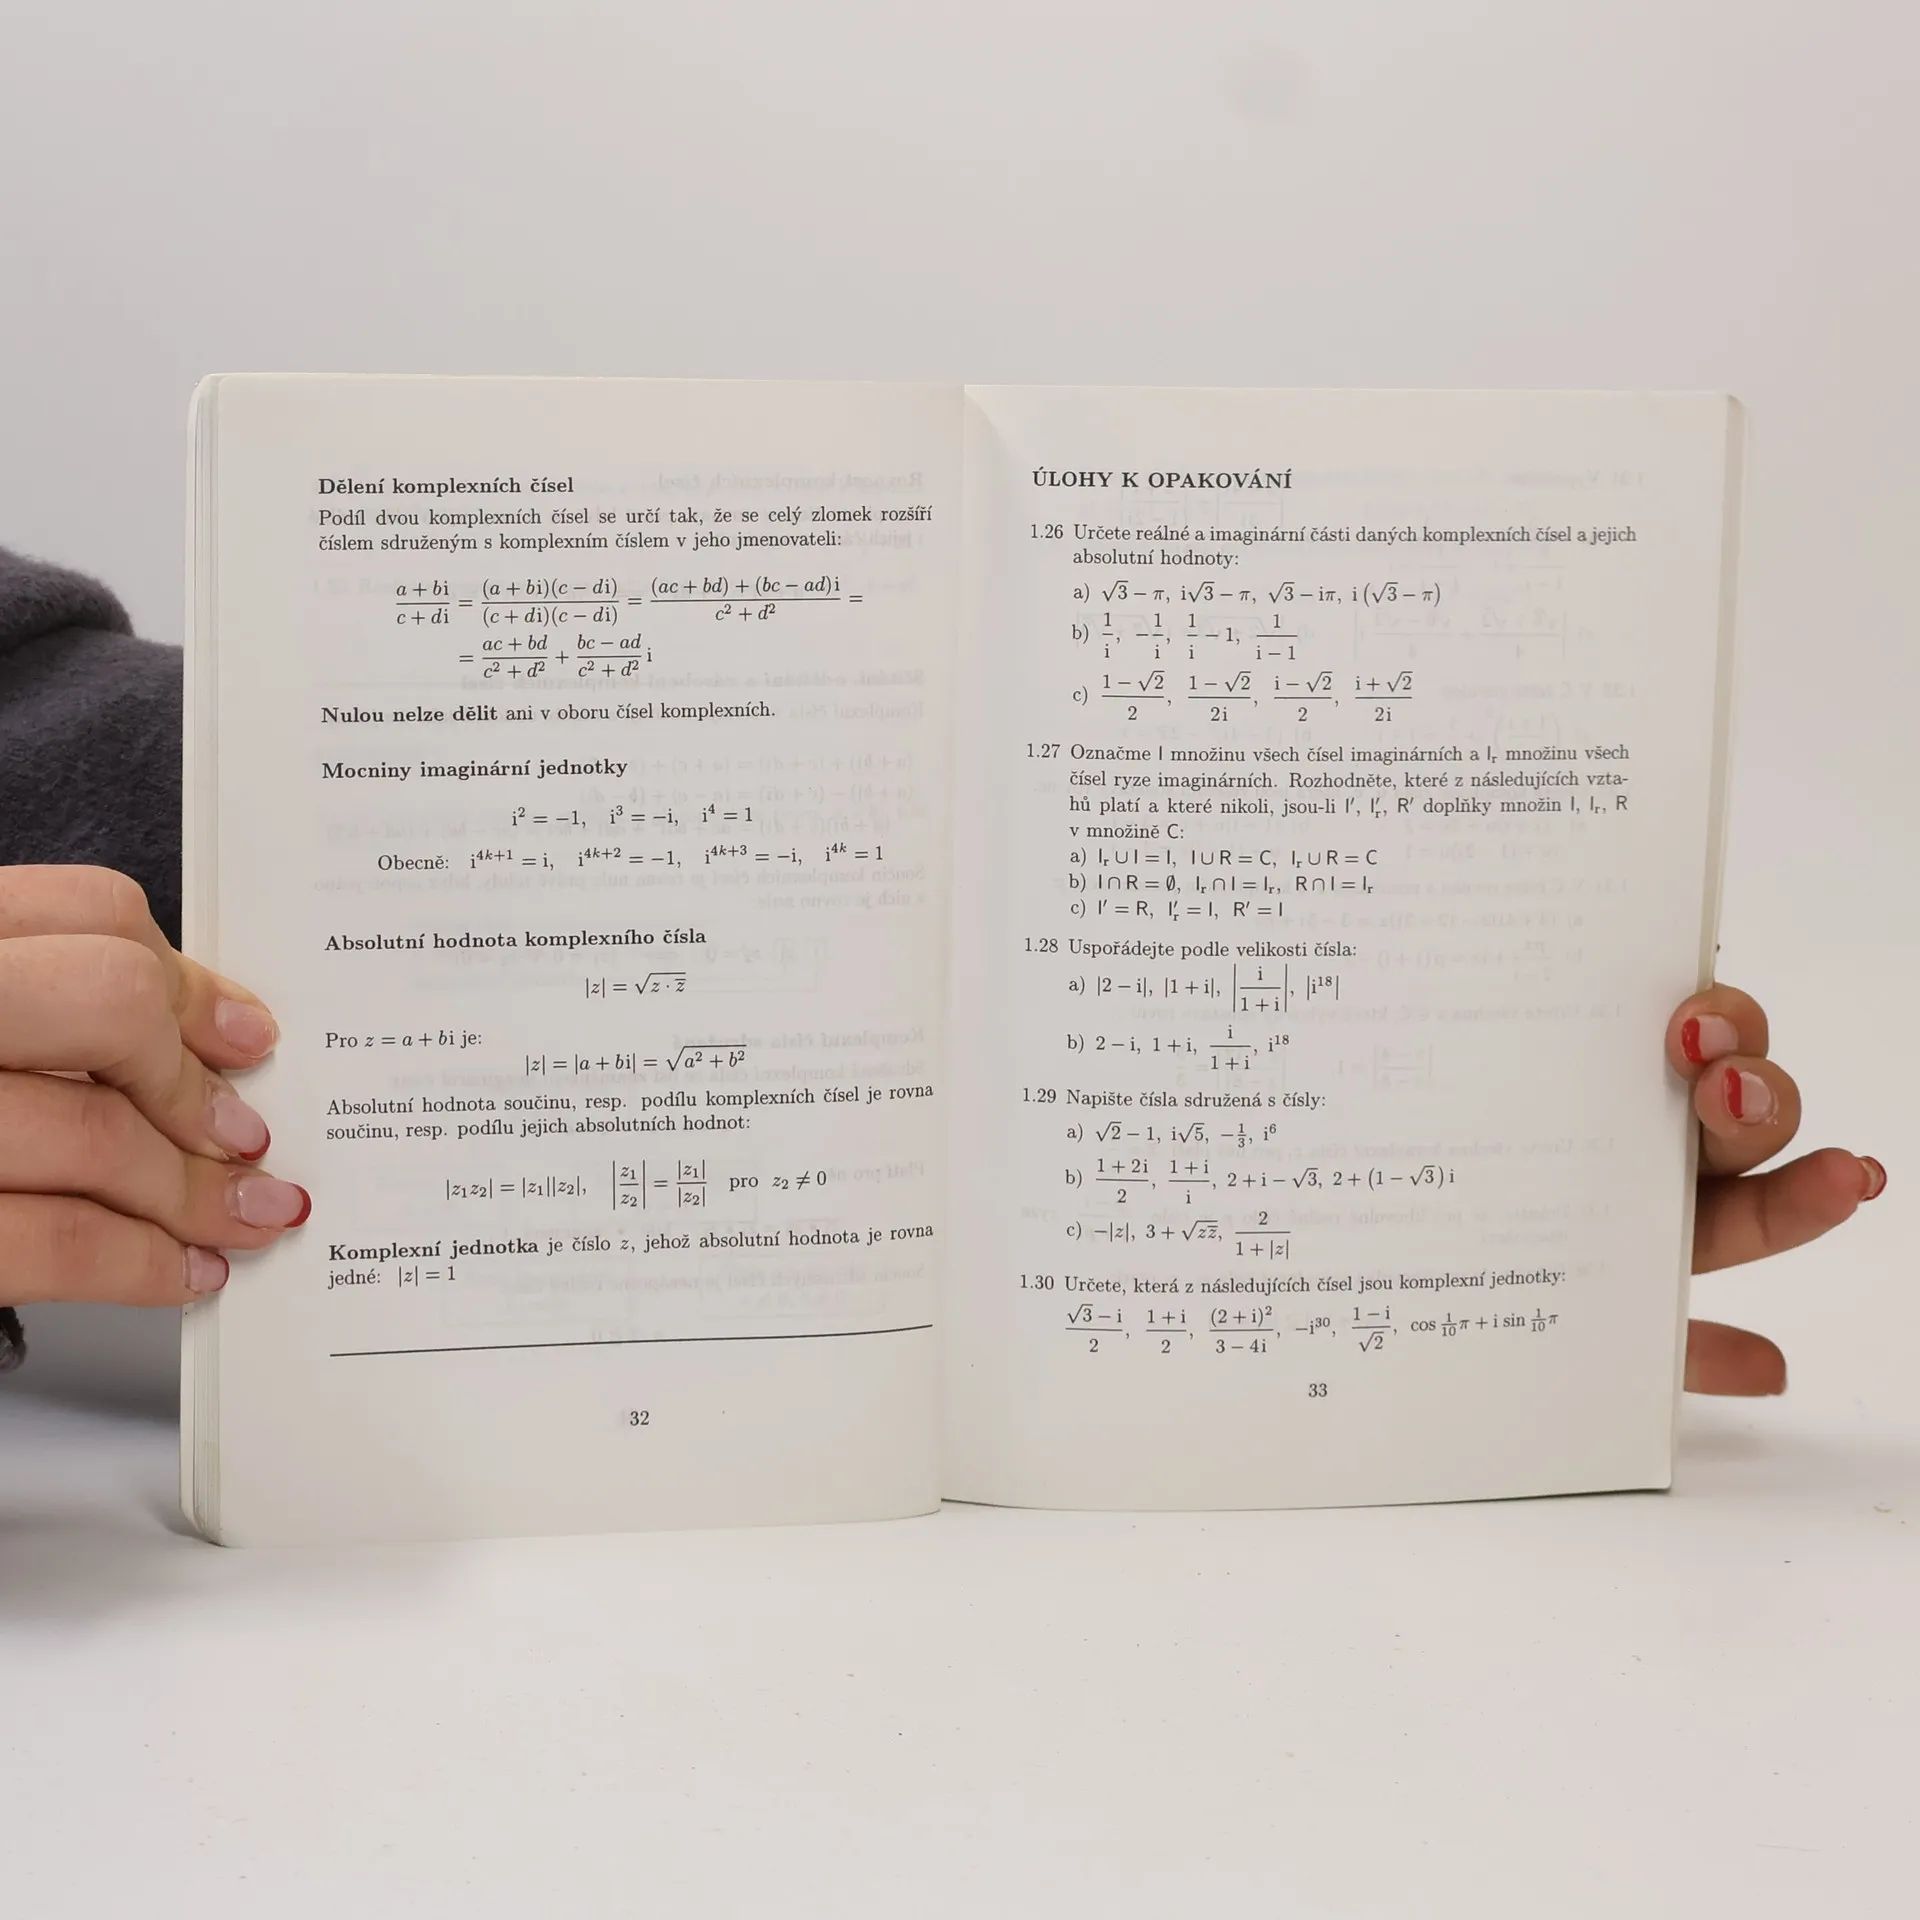 Dělení komplexních čísel
Podíl dvou komplexních čísel se určí tak, že se celý zlomek rozšíří
číslem sdruženým s komplexním číslem v jeho jmenovateli:
(a + bi)/(c + di) = ((a + bi)(c − di))/((c + di)(c − di)) = ((ac + bd) + (bc − ad)i)/(c² + d²) =
= (ac + bd)/(c² + d²) + (bc − ad)/(c² + d²) i
Nulou nelze dělit ani v oboru čísel komplexních.
Mocniny imaginární jednotky
i² = −1, i³ = −i, i⁴ = 1
Obecně: i⁴ᵏ⁺¹ = i, i⁴ᵏ⁺² = −1, i⁴ᵏ⁺³ = −i, i⁴ᵏ = 1
Absolutní hodnota komplexního čísla
|z| = √(z · z̅)
Pro z = a + bi je:
|z| = |a + bi| = √(a² + b²)
Absolutní hodnota součinu, resp. podílu komplexních čísel je rovna
součinu, resp. podílu jejich absolutních hodnot:
|z₁z₂| = |z₁||z₂|, |z₁/z₂| = |z₁|/|z₂| pro z₂ ≠ 0
Komplexní jednotka je číslo z, jehož absolutní hodnota je rovna
jedné: |z| = 1
32
ÚLOHY K OPAKOVÁNÍ
1.26 Určete reálné a imaginární části daných komplexních čísel a jejich
absolutní hodnoty:
a) √3 − π, i√3 − π, √3 − iπ, i (√3 − π)
b) 1/i, −1/i, 1/i − 1, 1/(i − 1)
c) (1 − √2)/2, (1 − √2)/(2i), (i − √2)/2, (i + √2)/(2i)
1.27 Označme I množinu všech čísel imaginárních a Iᵣ množinu všech
čísel ryze imaginárních. Rozhodněte, které z následujících vzta-
hů platí a které nikoli, jsou-li I′, I′ᵣ, R′ doplňky množin I, Iᵣ, R
v množině C:
a) Iᵣ ∪ I = I, I ∪ R = C, Iᵣ ∪ R = C
b) I ∩ R = ∅, Iᵣ ∩ I = Iᵣ, R ∩ I = Iᵣ
c) I′ = R, I′ᵣ = I, R′ = I
1.28 Uspořádejte podle velikosti čísla:
a) |2 − i|, |1 + i|, |i/(1 + i)|, |i¹⁸|
b) 2 − i, 1 + i, i/(1 + i), i¹⁸
1.29 Napište čísla sdružená s čísly:
a) √2 − 1, i√5, −1/3, i⁶
b) (1 + 2i)/2, (1 + i)/i, 2 + i − √3, 2 + (1 − √3) i
c) −|z|, 3 + √(zz̅), 2/(1 + |z|)
1.30 Určete, která z následujících čísel jsou komplexní jednotky:
(√3 − i)/2, (1 + i)/2, (2 + i)²/(3 − 4i), −i³⁰, (1 − i)/√2, cos 1/10 π + i sin 1/10 π
33